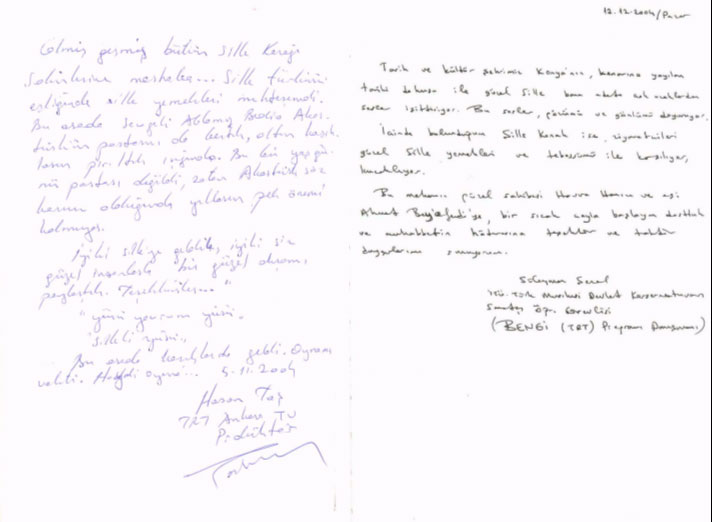 Gelmiş geçmiş bütün Sille Konağı
sahiplerine merhaba... Sille türküsü
eşliğinde sille yemekleri muhteşemdi.
Bu arada sevgili Ablamız Bedia Akar
türkün pastasını da kestik, altın kaşık
ların pırıltılı ışığında. Bu bir yaşgü-
nü pastası değildi, zaten söz
konusu olduğunda yılların pek önemi
kalmıyor.
İyiki Sille'ye geldik, iyiki siz
güzel insanlarla bir güzel akşamı
paylaştık. Teşekkürler..."
"yürü yavrum yürü.
Silleli yürü..
Bu arada kaşıklarda geldi. Oynama
vakti. Haydi oyuna... 5-11.2004
Hasan
TRT Ankara TV
Prodüktör
12.12.2004/Pazar
Tarih ve kültür şehrimiz Konya'nın, kenarına yayılan
tarihi dokusu ile güzel Sille bana adeta
sesler işittiriyor. Bu sesler, gözümü ve gönlümü doyuruyor.
İçinde bulunduğum Sille Konak ise, ziyaretçileri
güzel Sille yemekleri ve tebessümü ile karşılıyor,
kucaklıyor.
Bu mekanın güzel sahibesi Hanım ve eşi
Ahmet Beyefendi'ye, bir sıcak çayla başlayan dostluk
ve muhabbetin hatırasına teşekkür ve takdir
duygularımı sunuyorum.
Süleyman Şenel
İTÜ. Türk Musikisi Devlet Konservatuvarı
Sanatçı Öğr. Görevlisi
(BENGİ (TRT) Program Danışmanı)